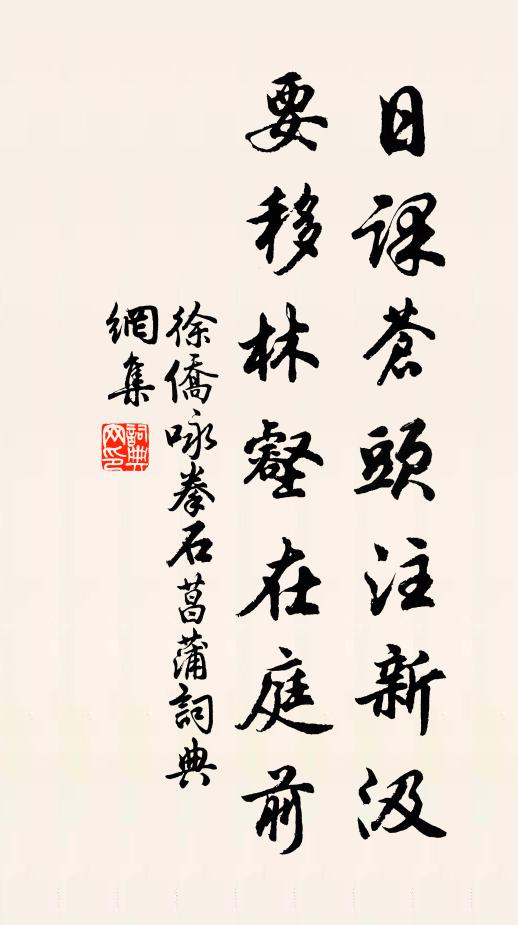 日課蒼頭注新汲
要移林壑在庭前
徐僑咏拳石菖蒲詞典
網集
詞典
网印